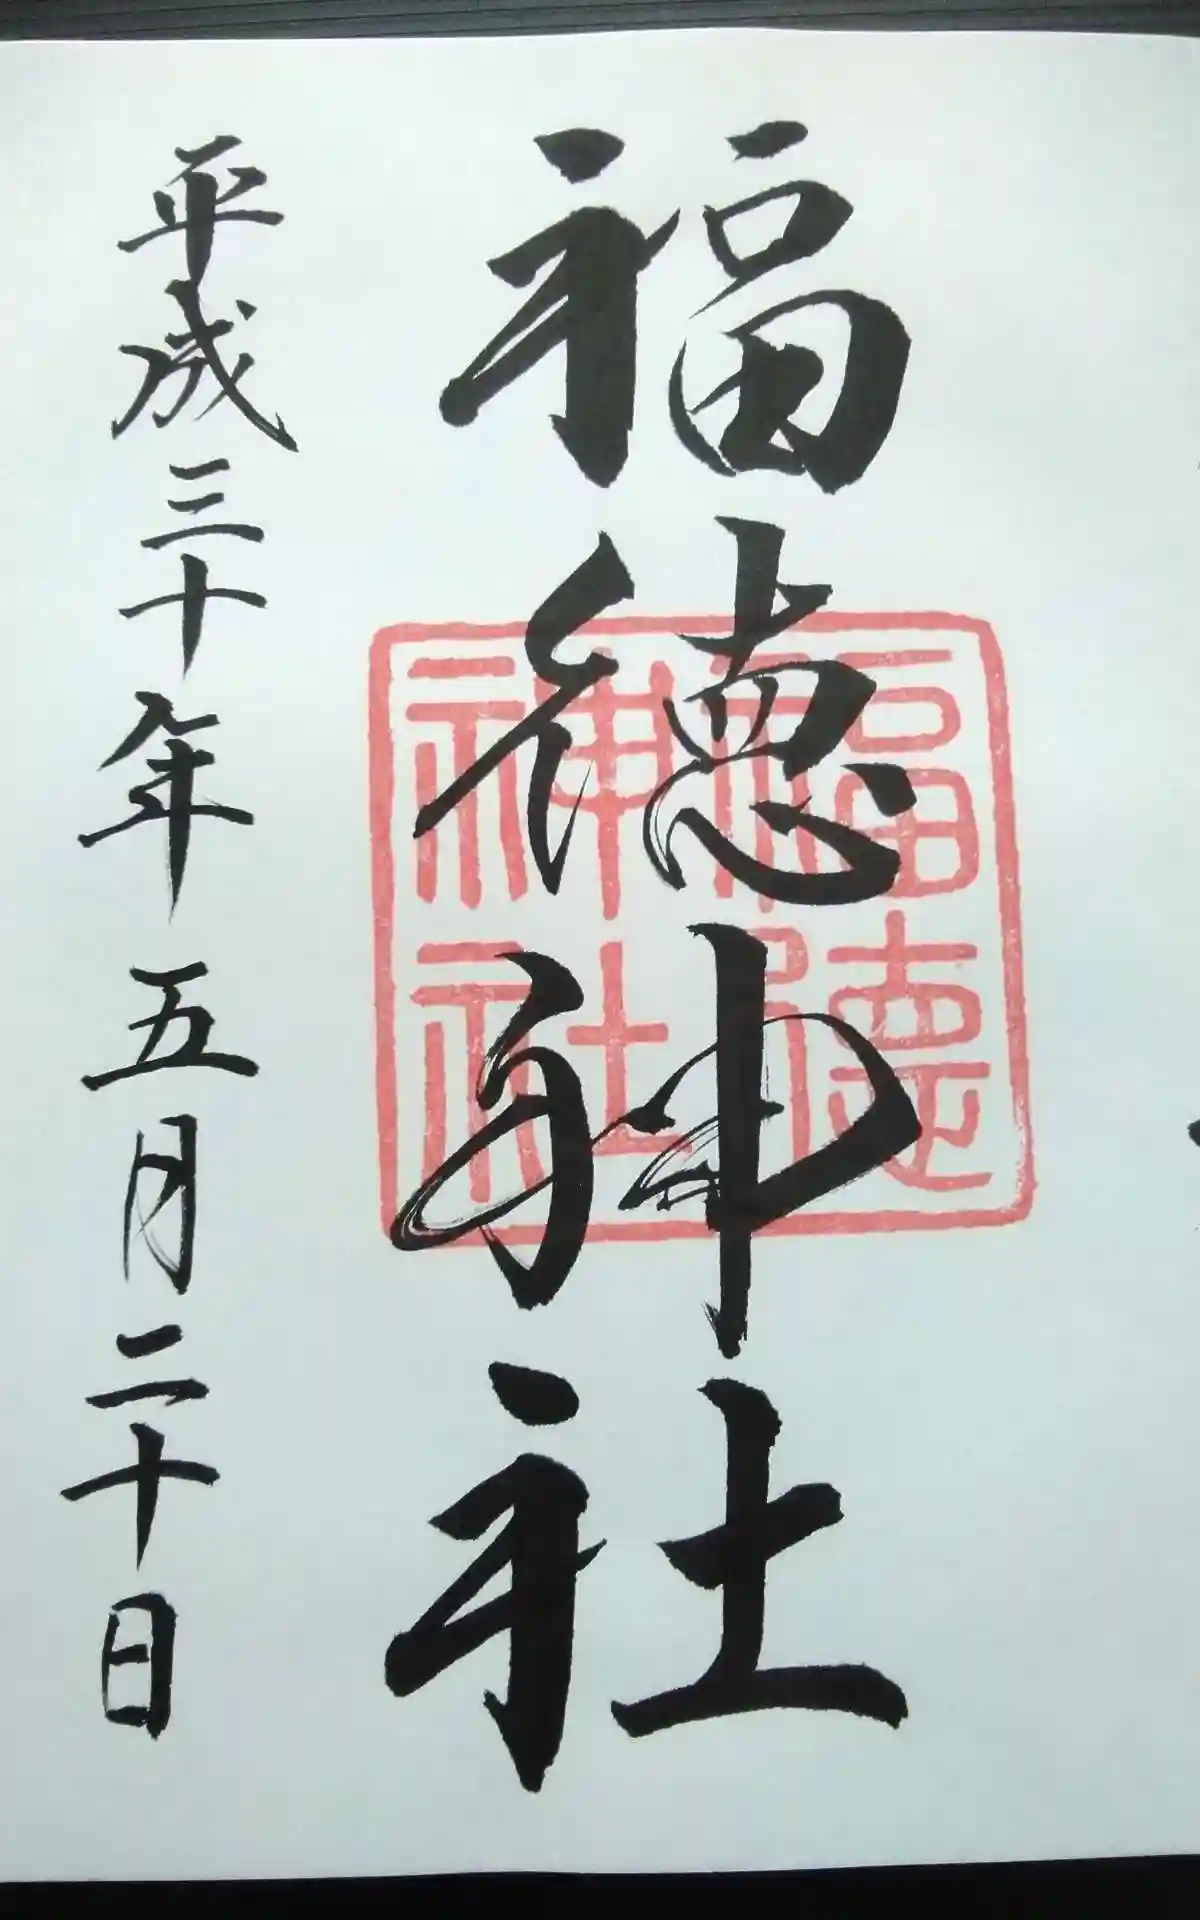 福徳神社
福徳
神社
平成三十年五月二十日